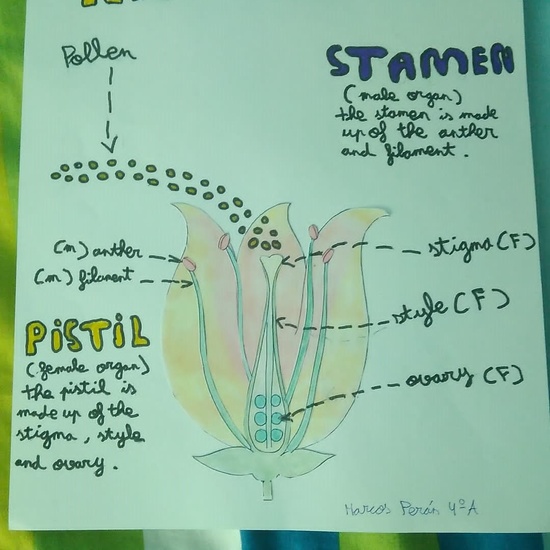 Pollen
STAMEN
(male organ)
the stamen is made
up of the anther
and filament.
(m) anther
(m) filament
stigma (F)
style (F)
ovary (F)
PiSTiL
(female organ)
the pistil is
made up of the
stigma, style
and ovary.
Marcos Perán 4ºA